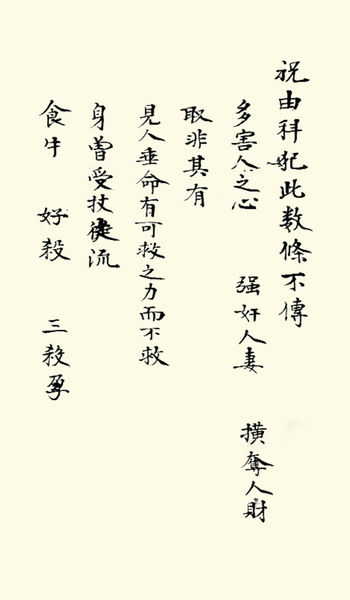 祝由科犯此数條不傳
多害人之心 强奸人妻 横奪人財
取非其有
見人垂命有可救之力而不救
身曾受杖徒流
食牛 好殺 三殺孕